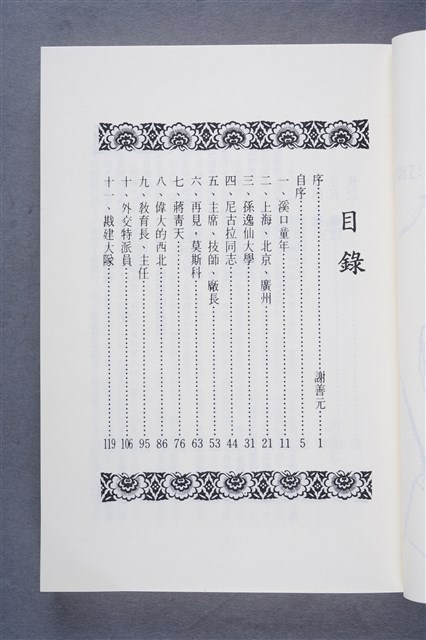 目錄
序……謝善元……1
自序……5
一、溪口童年……11
二、上海、北京、廣州……21
三、孫逸仙大學……31
四、尼古拉同志……44
五、主席、技師、廠長……53
六、再見，莫斯科……63
七、蔣青天……76
八、偉大的西北……86
九、教育長、主任……95
十、外交特派員……106
十一、戡建大隊……119